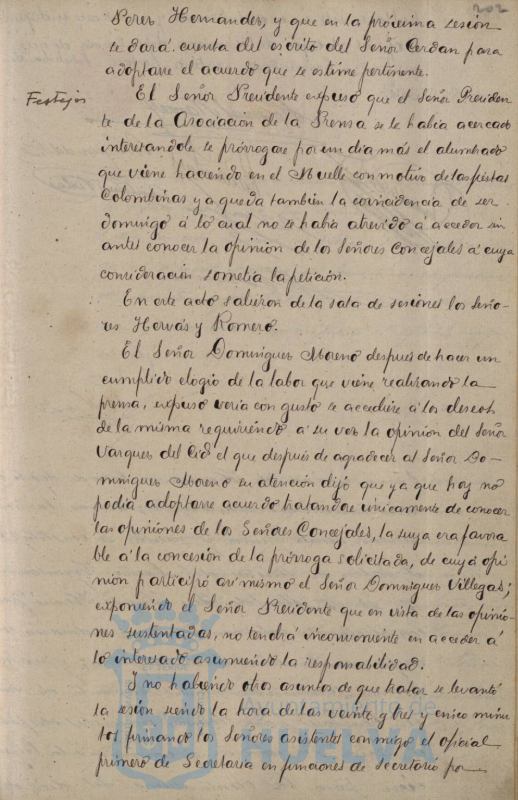 202
ñores Hernandez, y que en la próxima sesión
se dará cuenta del escrito del Señor Cerdan para
adoptarse el acuerdo que se estime pertinente.
Festejos
El Señor Presidente expuso que el Señor Presiden-
te de la Asociación de la Prensa se le había acercado
interesandole se prórrogase por un dia más el alumbrado
que viene haciendo en el Muelle con motivo de las fiestas
Colombinas y aqueda también la coincidencia de ser
domingo á lo cual no se había atrevido á acceder sin
antes conocer la opinión de los Señores Concejales á cuya
consideración sometía la petición.
En este acto salieron de la sala de sesiones los Seño-
res Hervás y Romero.
El Señor Dominguez Moreno despues de hacer un
cumplido elogio de la labor que viene realizando la
prensa, expuso vería con gusto se accediese á los deseos
de la misma requiriendo á su vez la opinión del Señor
Vazquez del Cid el que después de agradecer al Señor Do-
minguez Moreno su atención dijó que ya que hoy no
podía adoptarse acuerdo tratandose únicamente de conocer
las opiniones de los Señores Concejales, la suya era favora
ble á la concesión de la prórroga solicitada, de cuya opi
nión participó asi mismo el Señor Dominguez Villegas;
exponiendo el Señor Presidente que en vista de las opinio-
nes sustentadas, no tendrá inconveniente en acceder á
lo interesado asumiendo la responsabilidad.
Y no habiendo otros asuntos de que tratar se levantó
la sesión siendo la hora de las veinte y tres y cinco minu
tos firmando los Señores asistentes conmigo el oficial
primero de Secretaria en funciones de Secretario por
Ayuntamiento de
HUELVA